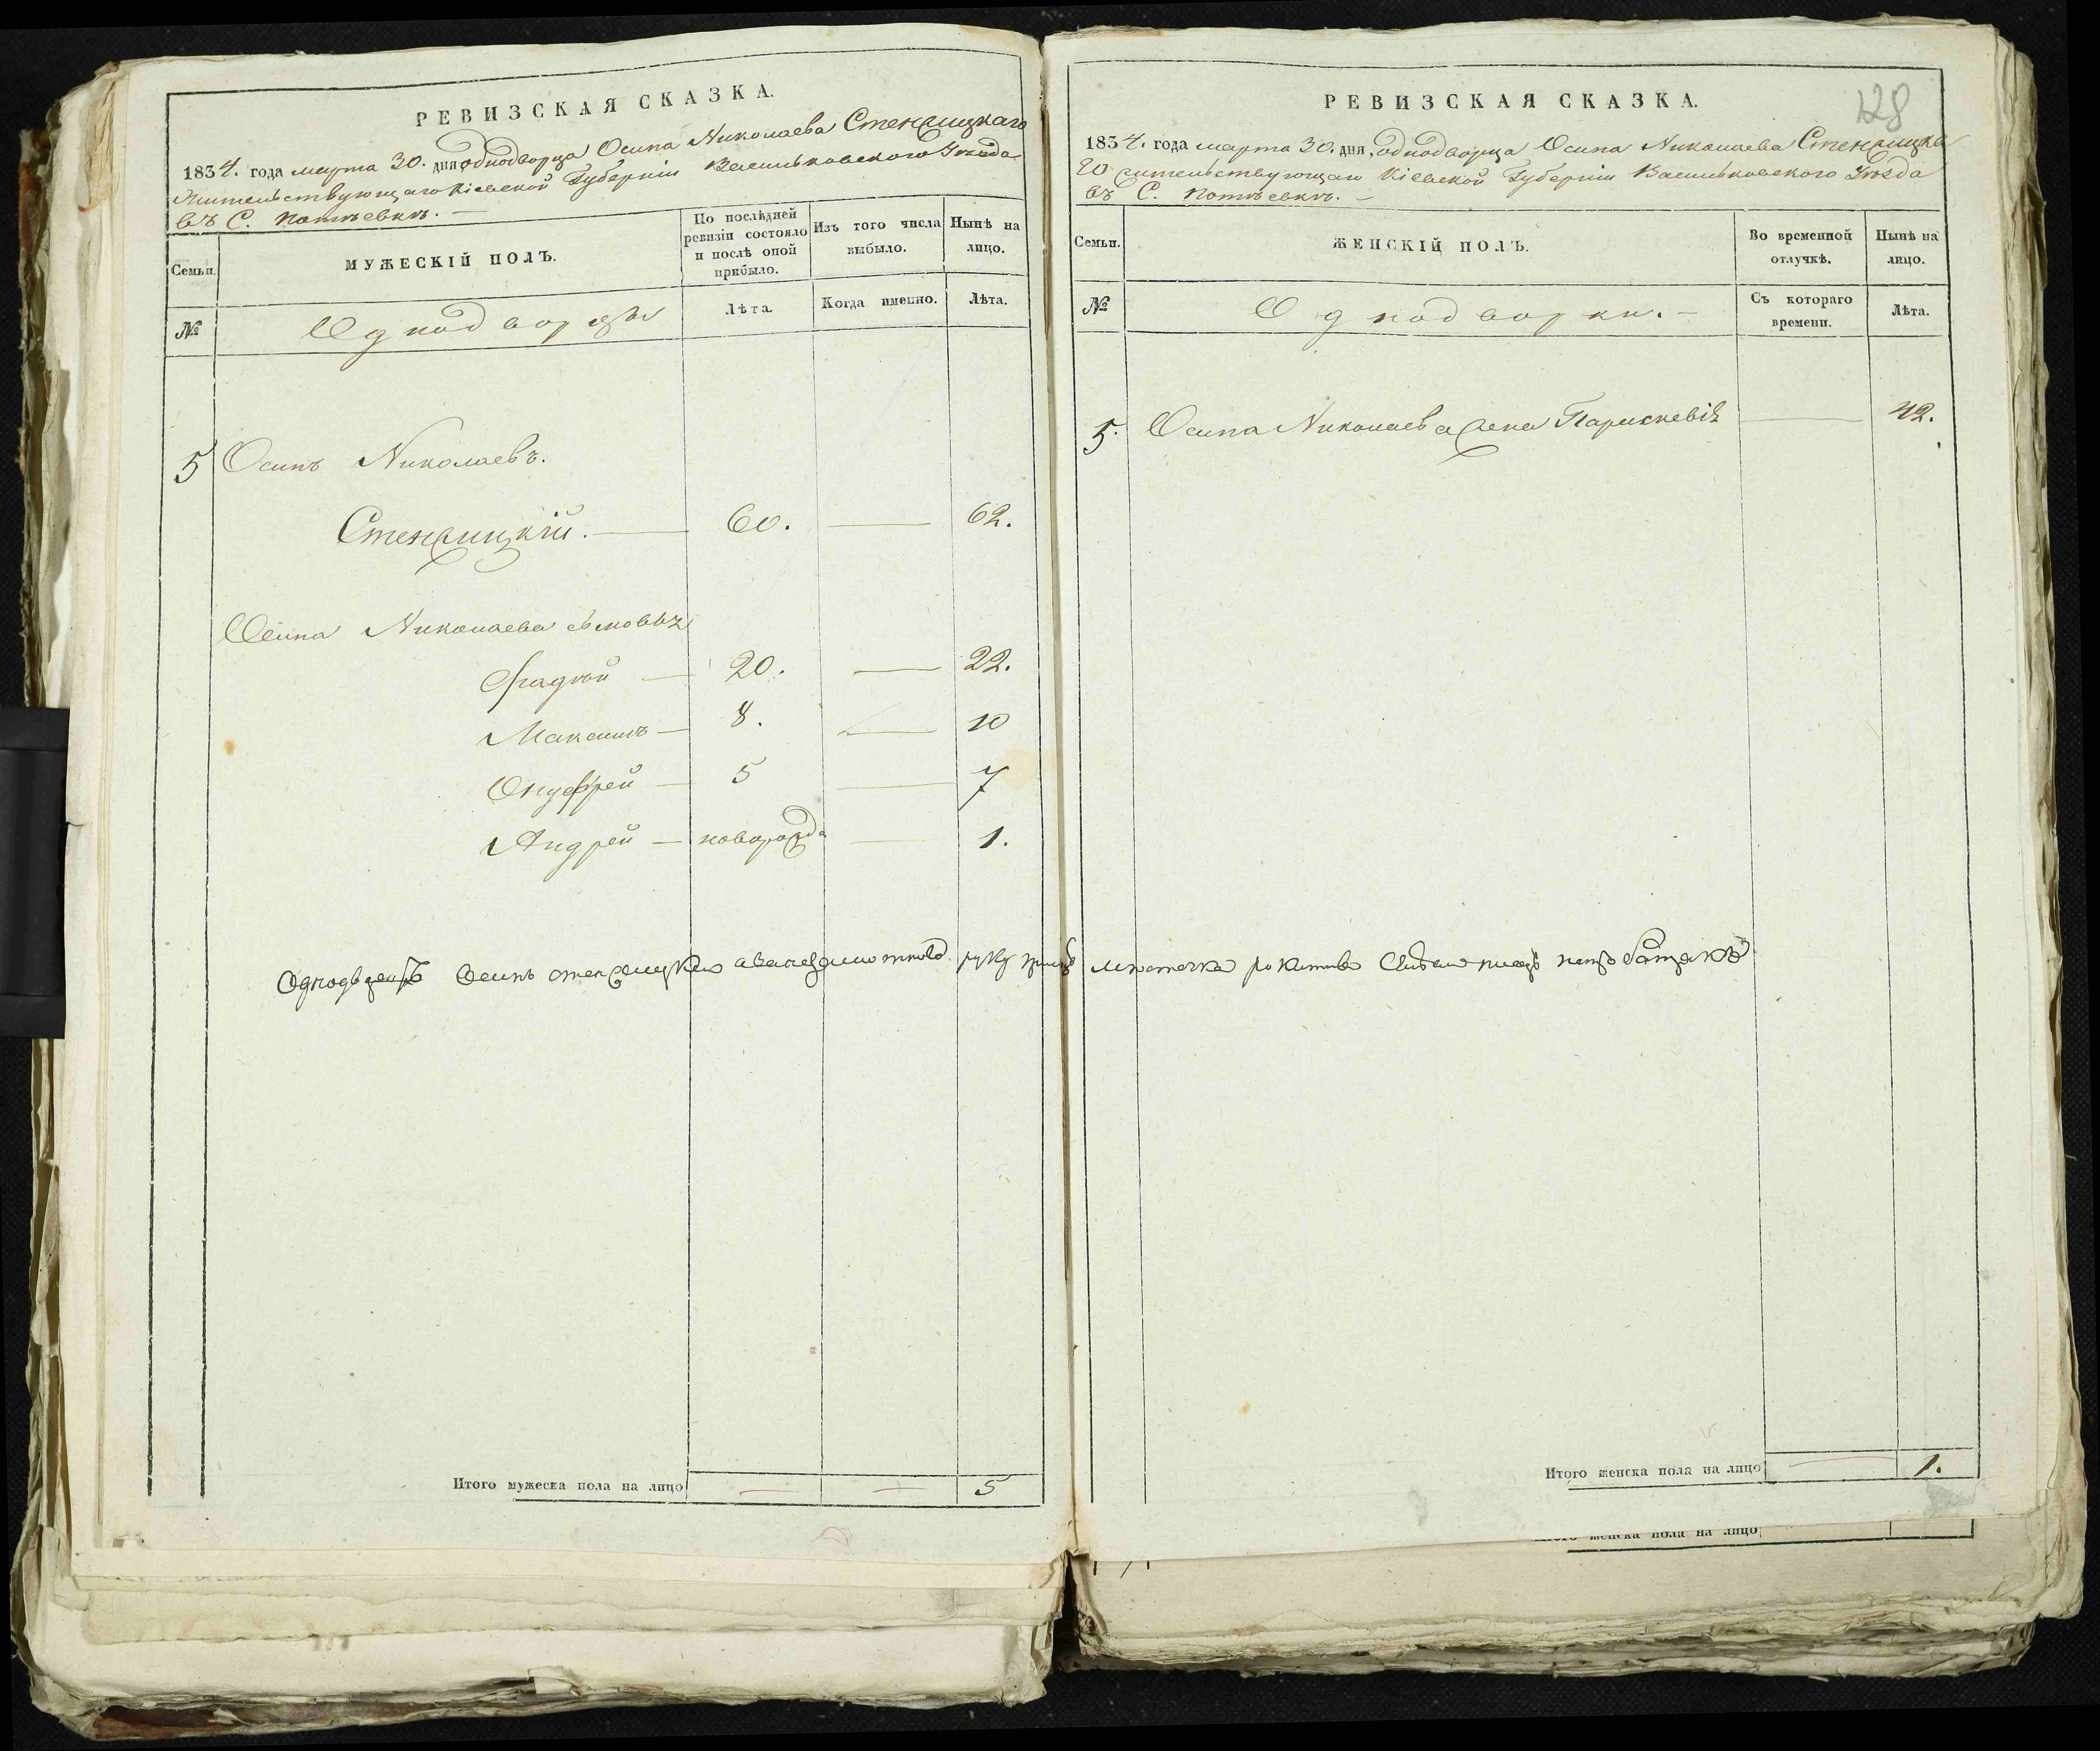 РЕВИЗСКАЯ СКАЗКА.
1834. года марта 30. дня, однодворца Осипа Николаева Стенжицкаго
Жительствующаго Кіевской Губерніи Васильковского Уезда
въ С. Потѣевкѣ. —
Семьи.
МУЖЕСКІЙ ПОЛЪ.
По послѣдней ревизіи состояло и послѣ оной прибыло.
Изъ того числа выбыло.
Нынѣ на лицо.
№
Однодворцы
Лѣта
Когда именно.
Лѣта.
5 Осипъ Николаевъ.
Стенжицкій. — 60. — 62.
Осипа Николаева сыновья
Фадѣй — 20. — 22.
Максимъ — 8. — 10
Онуфрей — 5 — 7
Андрей — новорожда — 1.
Однодворецъ Осипъ Стенжицкий а вместо его руку
Итого мужеска пола на лицо — — 5
128
РЕВИЗСКАЯ СКАЗКА.
1834. года марта 30. дня, однодворца Осипа Николаева Стенжицка
го жительствующаго Кіевской Губерніи Васильковского Уѣзда
въ С. Потѣевкѣ. —
Семьи.
ЖЕНСКІЙ ПОЛЪ.
Во временной отлучкѣ.
Нынѣ на лицо.
№
Однодворки. —
Съ котораго времени.
Лѣта.
5. Осипа Николаева жена Парискевія — 42.
местечка Рокитна
Итого женска пола на лицо — 1.
женска пола на лицо